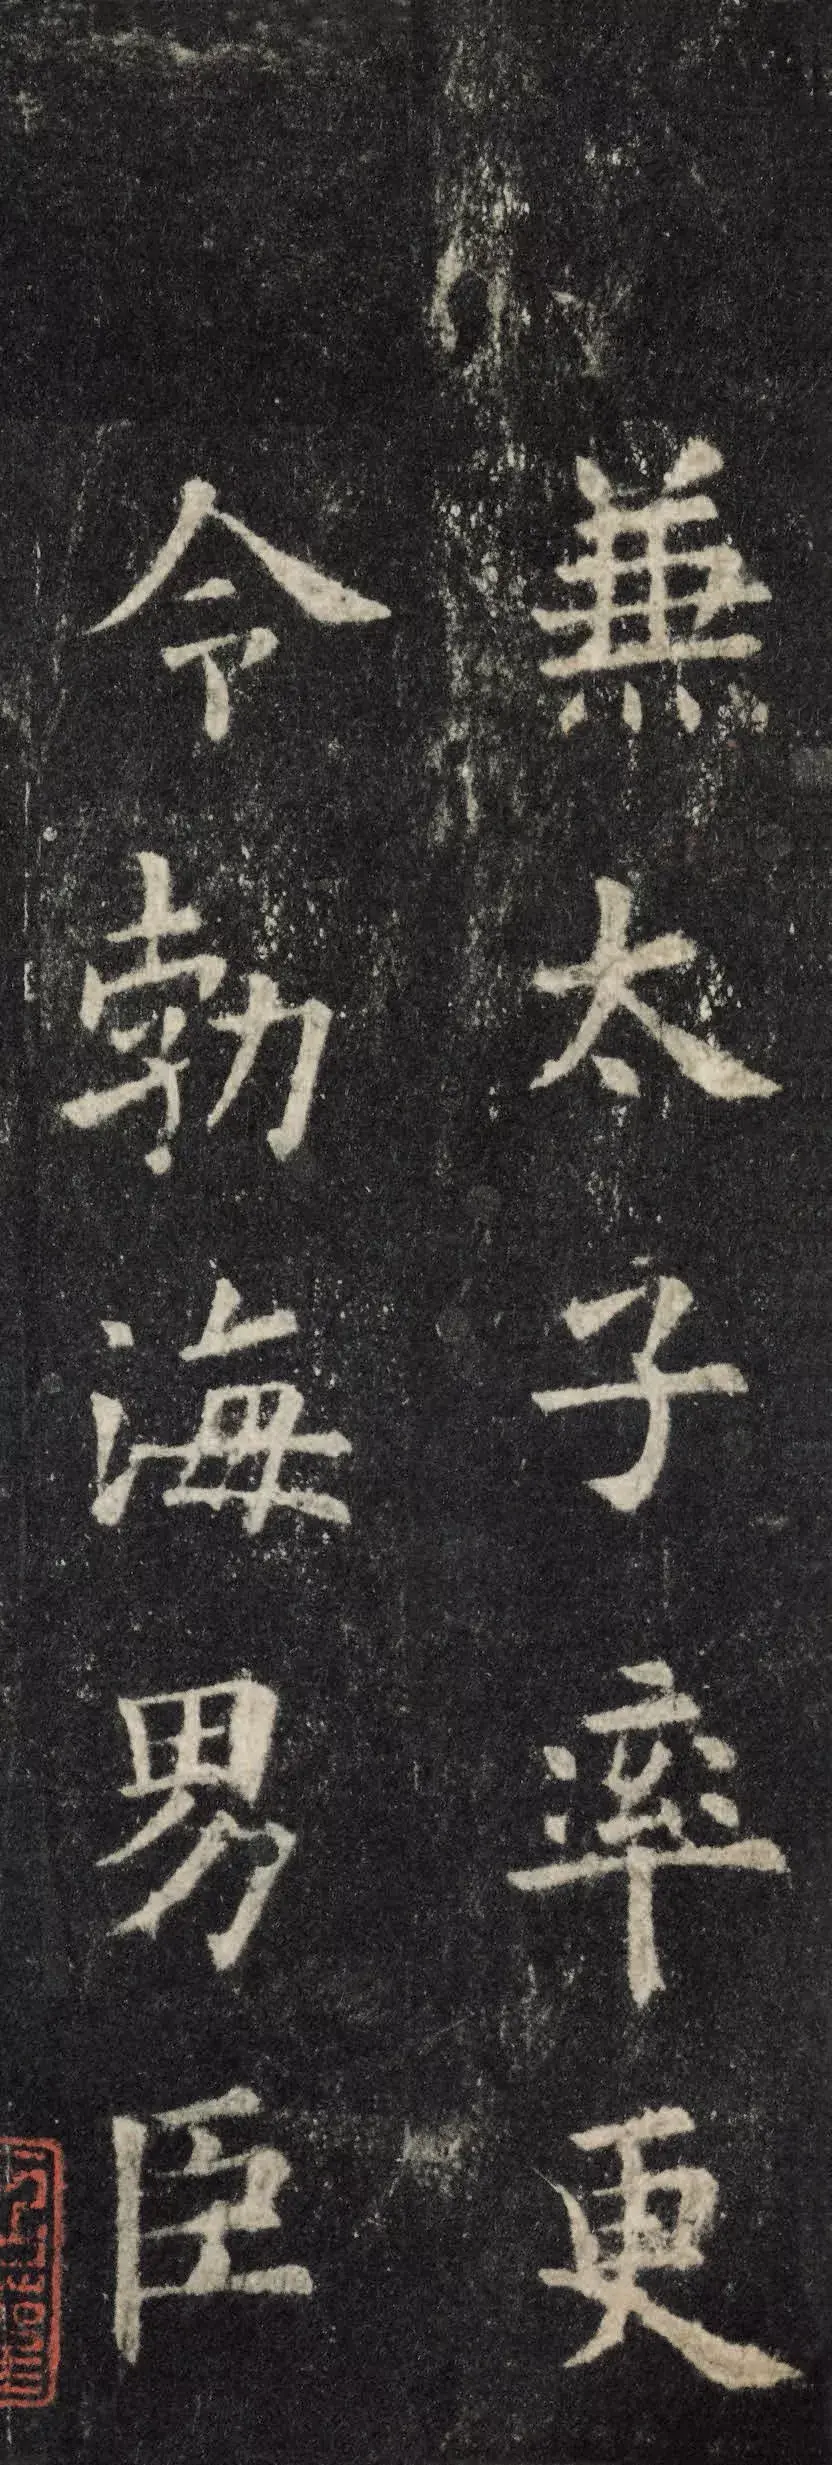 兼太子率更
令勃海男臣